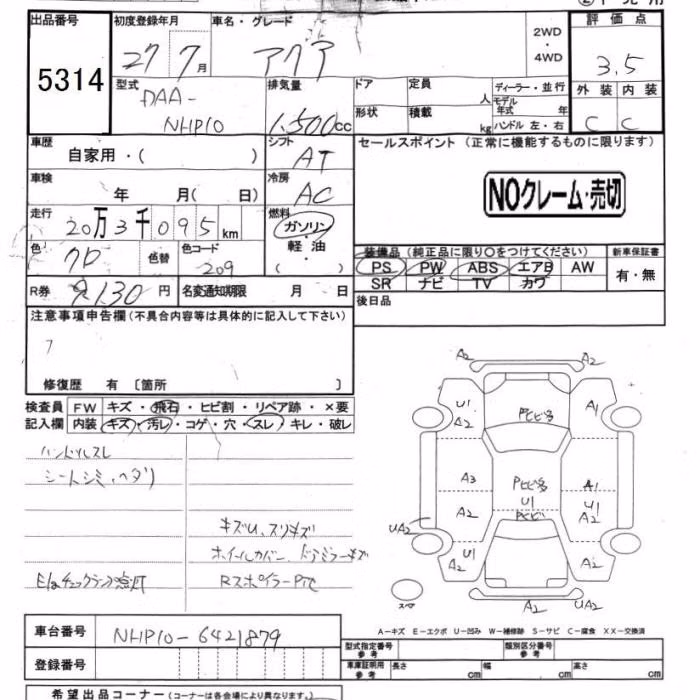 出品番号 初度登録年月 車名・グレード 2WD・4WD 評価点
5314 27 7月 アクア 3.5
型式 排気量 ドア 定員 人 ディーラー・並行 外装 内装
DAA-NHP10 1,500cc 形状 積載 kg モデル年式 年 C C
ハンドル 左・右
車歴 シフト セールスポイント (正常に機能するものに限ります)
自家用・( ) AT
車検 冷房 NOクレーム・売切
年 月( 日) AC
走行 燃料
20万3千095km ガソリン
色 色替 色コード 軽・油 装備品 (純正品に限り○をつけてください) 新車保証書
クロ 209 ( ) PS PW ABS エアB AW 有・無
SR ナビ TV カワ
R券 9,130円 名変通知期限 月 日 後日品
注意事項申告欄(不具合内容等は具体的に記入して下さい)
修復歴 有 〔箇所 〕
検査員 FW キズ・飛石・ヒビ割・リペア跡・×要
記入欄 内装 キズ・汚レ・コゲ・穴・スレ・キレ・破レ
ハンドルスレ
シートシミ、ヘタリ
キズU、スリキズ
ホイールカバー、ドアミラーキズ
E/gチェックランプ点灯 Rスポイラー
A2 A2
U1 A2 Pヒビ多 A1
A3 Pヒビ多 A1
U1 U1
UA2 A2 Pヒビ A2
U1 A2 A2
スペア A2 UA2
A-キズ E-エクボ U-凹み W-補修跡 S-サビ C-腐食 XX-交換済
車台番号 NHP10-6421879
型式指定番号 参考 類別区分番号 参考
登録番号 車庫証明用 参考 長さ cm 幅 cm 高さ cm
希望出品コーナー (コーナーは各会場により異なります。)